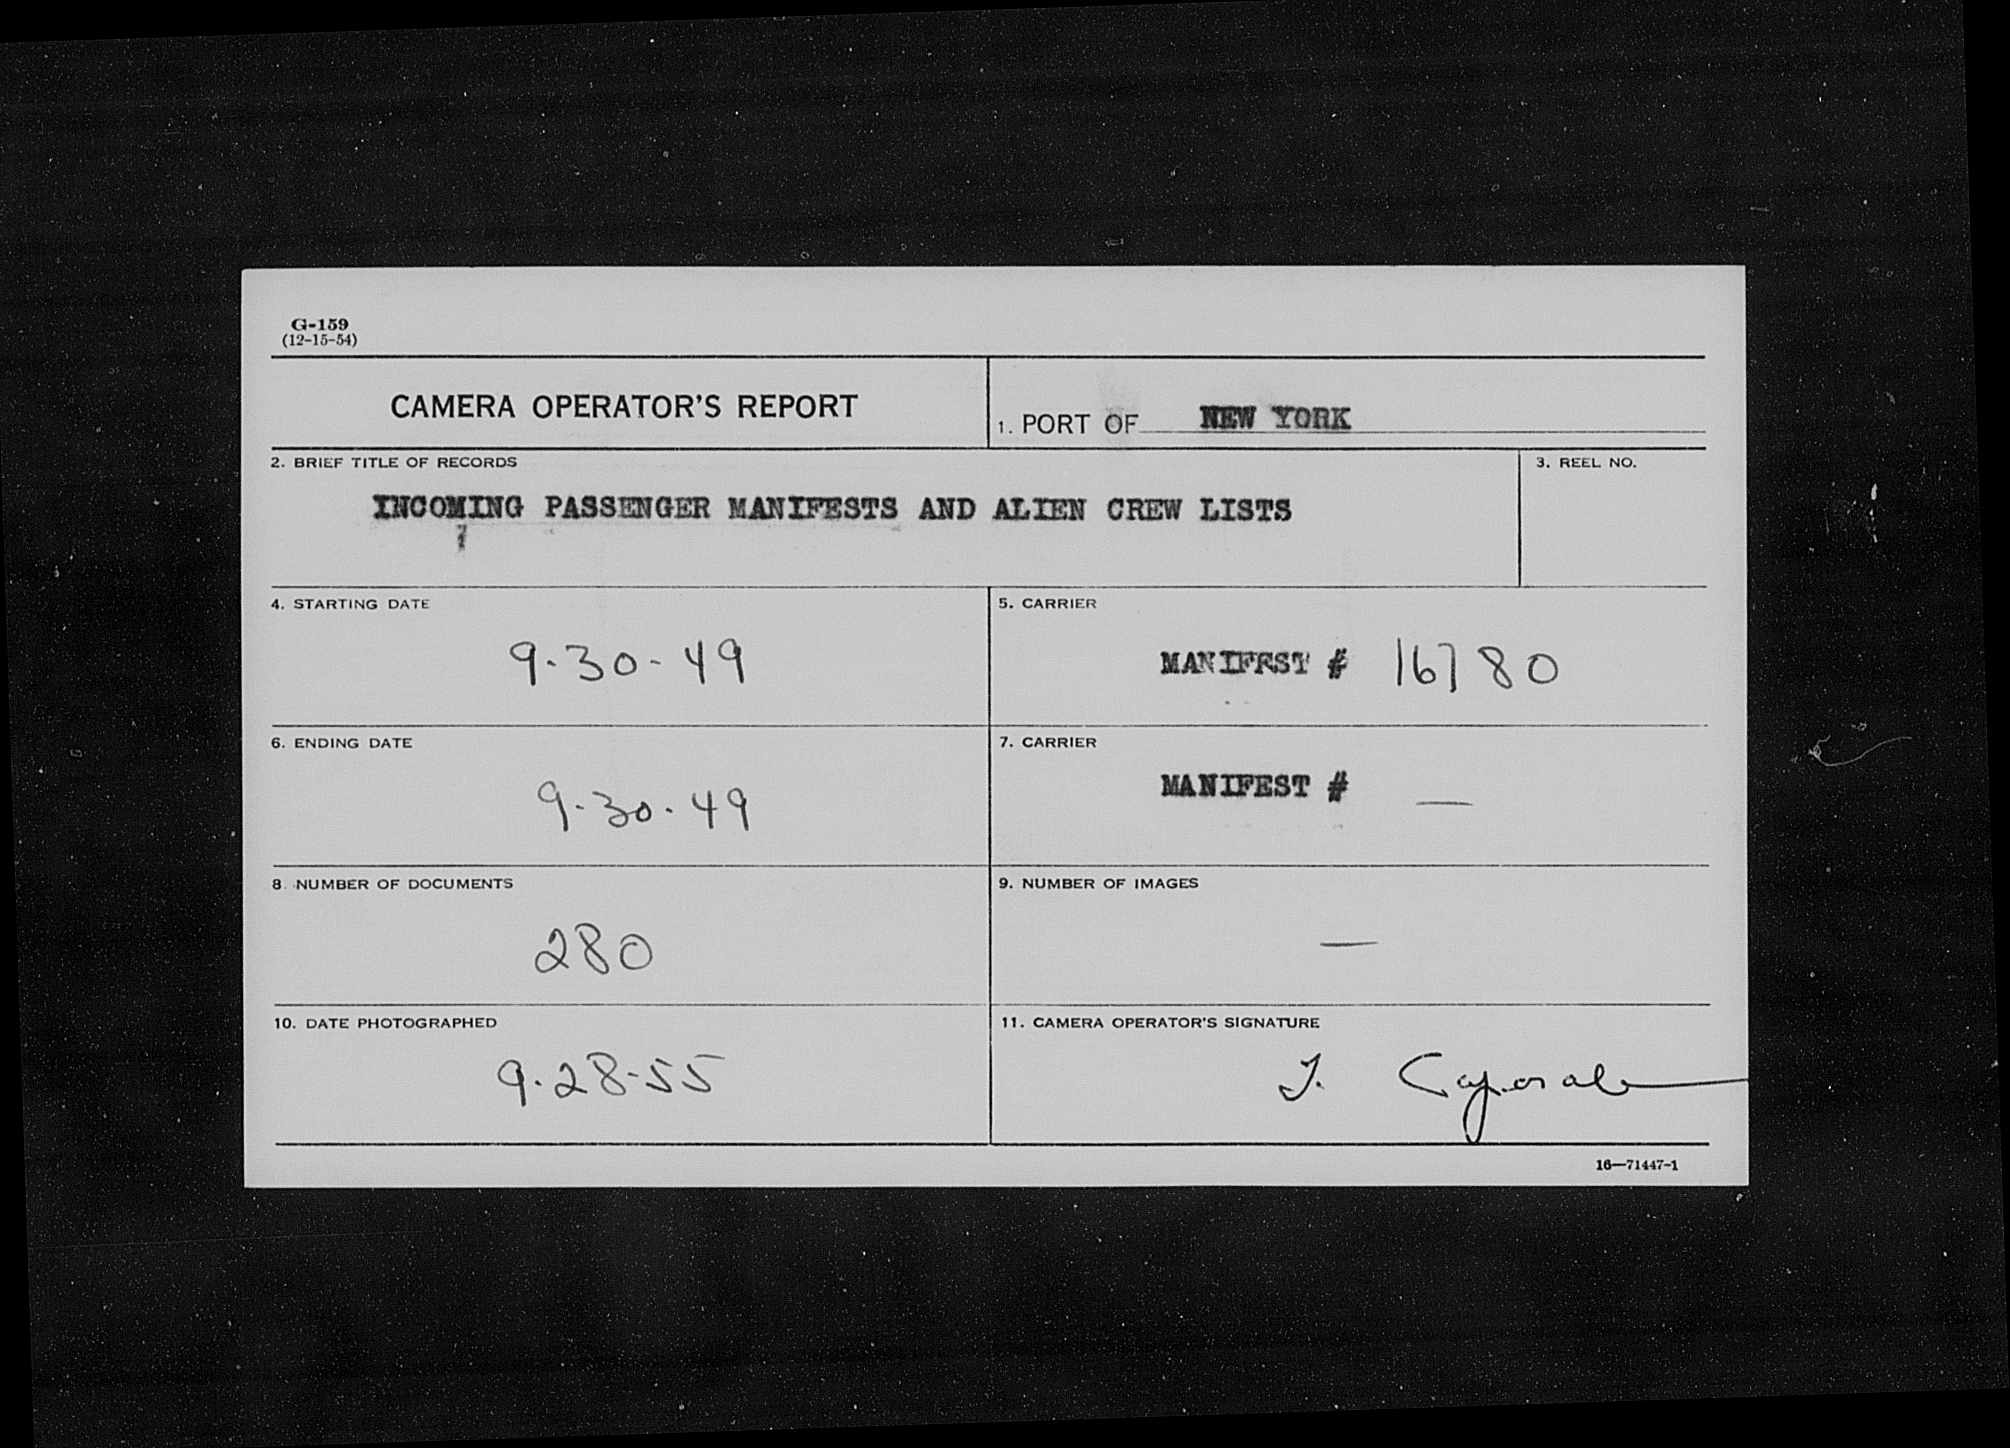 G-159
(12-15-54)
CAMERA OPERATOR'S REPORT
1. PORT OF NEW YORK
2. BRIEF TITLE OF RECORDS
3. REEL NO.
INCOMING PASSENGER MANIFESTS AND ALIEN CREW LISTS
4. STARTING DATE
5. CARRIER
9-30-49
MANIFEST # 16780
6. ENDING DATE
7. CARRIER
9-30-49
MANIFEST # —
8. NUMBER OF DOCUMENTS
9. NUMBER OF IMAGES
280
—
10. DATE PHOTOGRAPHED
11. CAMERA OPERATOR'S SIGNATURE
9-28-55
16—71447-1